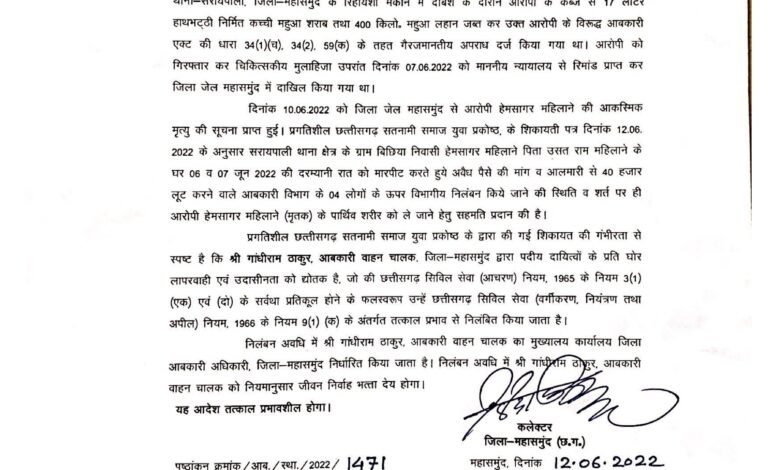 थाना-सरायपाली, जिला-महासमुंद के रिहायशी मकान में दबिश के दौरान आरोपी के कब्जे से 17 लीटर
हाथभट्ठी निर्मित कच्ची महुआ शराब तथा 400 किलो. महुआ लहान जब्त कर उक्त आरोपी के विरूद्ध आबकारी
एक्ट की धारा 34(1)(च), 34(2), 59(क) के तहत गैरजमानतीय अपराध दर्ज किया गया था। आरोपी को
गिरफ्तार कर चिकित्सकीय मुलाहिजा उपरांत दिनांक 07.06.2022 को माननीय न्यायालय से रिमांड प्राप्त कर
जिला जेल महासमुंद में दाखिल किया गया था।
दिनांक 10.06.2022 को जिला जेल महासमुंद से आरोपी हेमसागर महिलाने की आकस्मिक
मृत्यु की सूचना प्राप्त हुई। प्रगतिशील छत्तीसगढ़ सतनामी समाज युवा प्रकोष्ठ, के शिकायती पत्र दिनांक 12.06.
2022 के अनुसार सरायपाली थाना क्षेत्र के ग्राम बिछिया निवासी हेमसागर महिलाने पिता उसत राम महिलाने के
घर 06 व 07 जून 2022 की दरम्यानी रात को मारपीट करते हुये अवैध पैसे की मांग व आलमारी से 40 हजार
लूट करने वाले आबकारी विभाग के 04 लोगों के ऊपर विभागीय निलंबन किये जाने की स्थिति व शर्त पर ही
आरोपी हेमसागर महिलाने (मृतक) के पार्थिव शरीर को ले जाने हेतु सहमति प्रदान की है।
प्रगतिशील छत्तीसगढ़ सतनामी समाज युवा प्रकोष्ठ के द्वारा की गई शिकायत की गंभीरता से
स्पष्ट है कि श्री गांधीराम ठाकुर, आबकारी वाहन चालक, जिला-महासमुंद द्वारा पदीय दायित्वों के प्रति घोर
लापरवाही एवं उदासीनता को द्योतक है, जो की छत्तीसगढ़ सिविल सेवा (आचरण) नियम, 1965 के नियम 3(1)
(एक) एवं (दो) के सर्वथा प्रतिकूल होने के फलस्वरूप उन्हें छत्तीसगढ़ सिविल सेवा (वर्गीकरण, नियंत्रण तथा
अपील) नियम, 1966 के नियम 9(1) (क) के अंतर्गत तत्काल प्रभाव से निलंबित किया जाता है।
निलंबन अवधि में श्री गांधीराम ठाकुर, आबकारी वाहन चालक का मुख्यालय कार्यालय जिला
आबकारी अधिकारी, जिला-महासमुंद निर्धारित किया जाता है। निलंबन अवधि में श्री गांधीराम ठाकुर, आबकारी
वाहन चालक को नियमानुसार जीवन निर्वाह भत्ता देय होगा।
यह आदेश तत्काल प्रभावशील होगा।
कलेक्टर
जिला-महासमुंद (छ.ग.)
पृष्ठांकन क्रमांक/आब./स्था./2022/ 1471 महासमुंद, दिनांक 12.06.2022